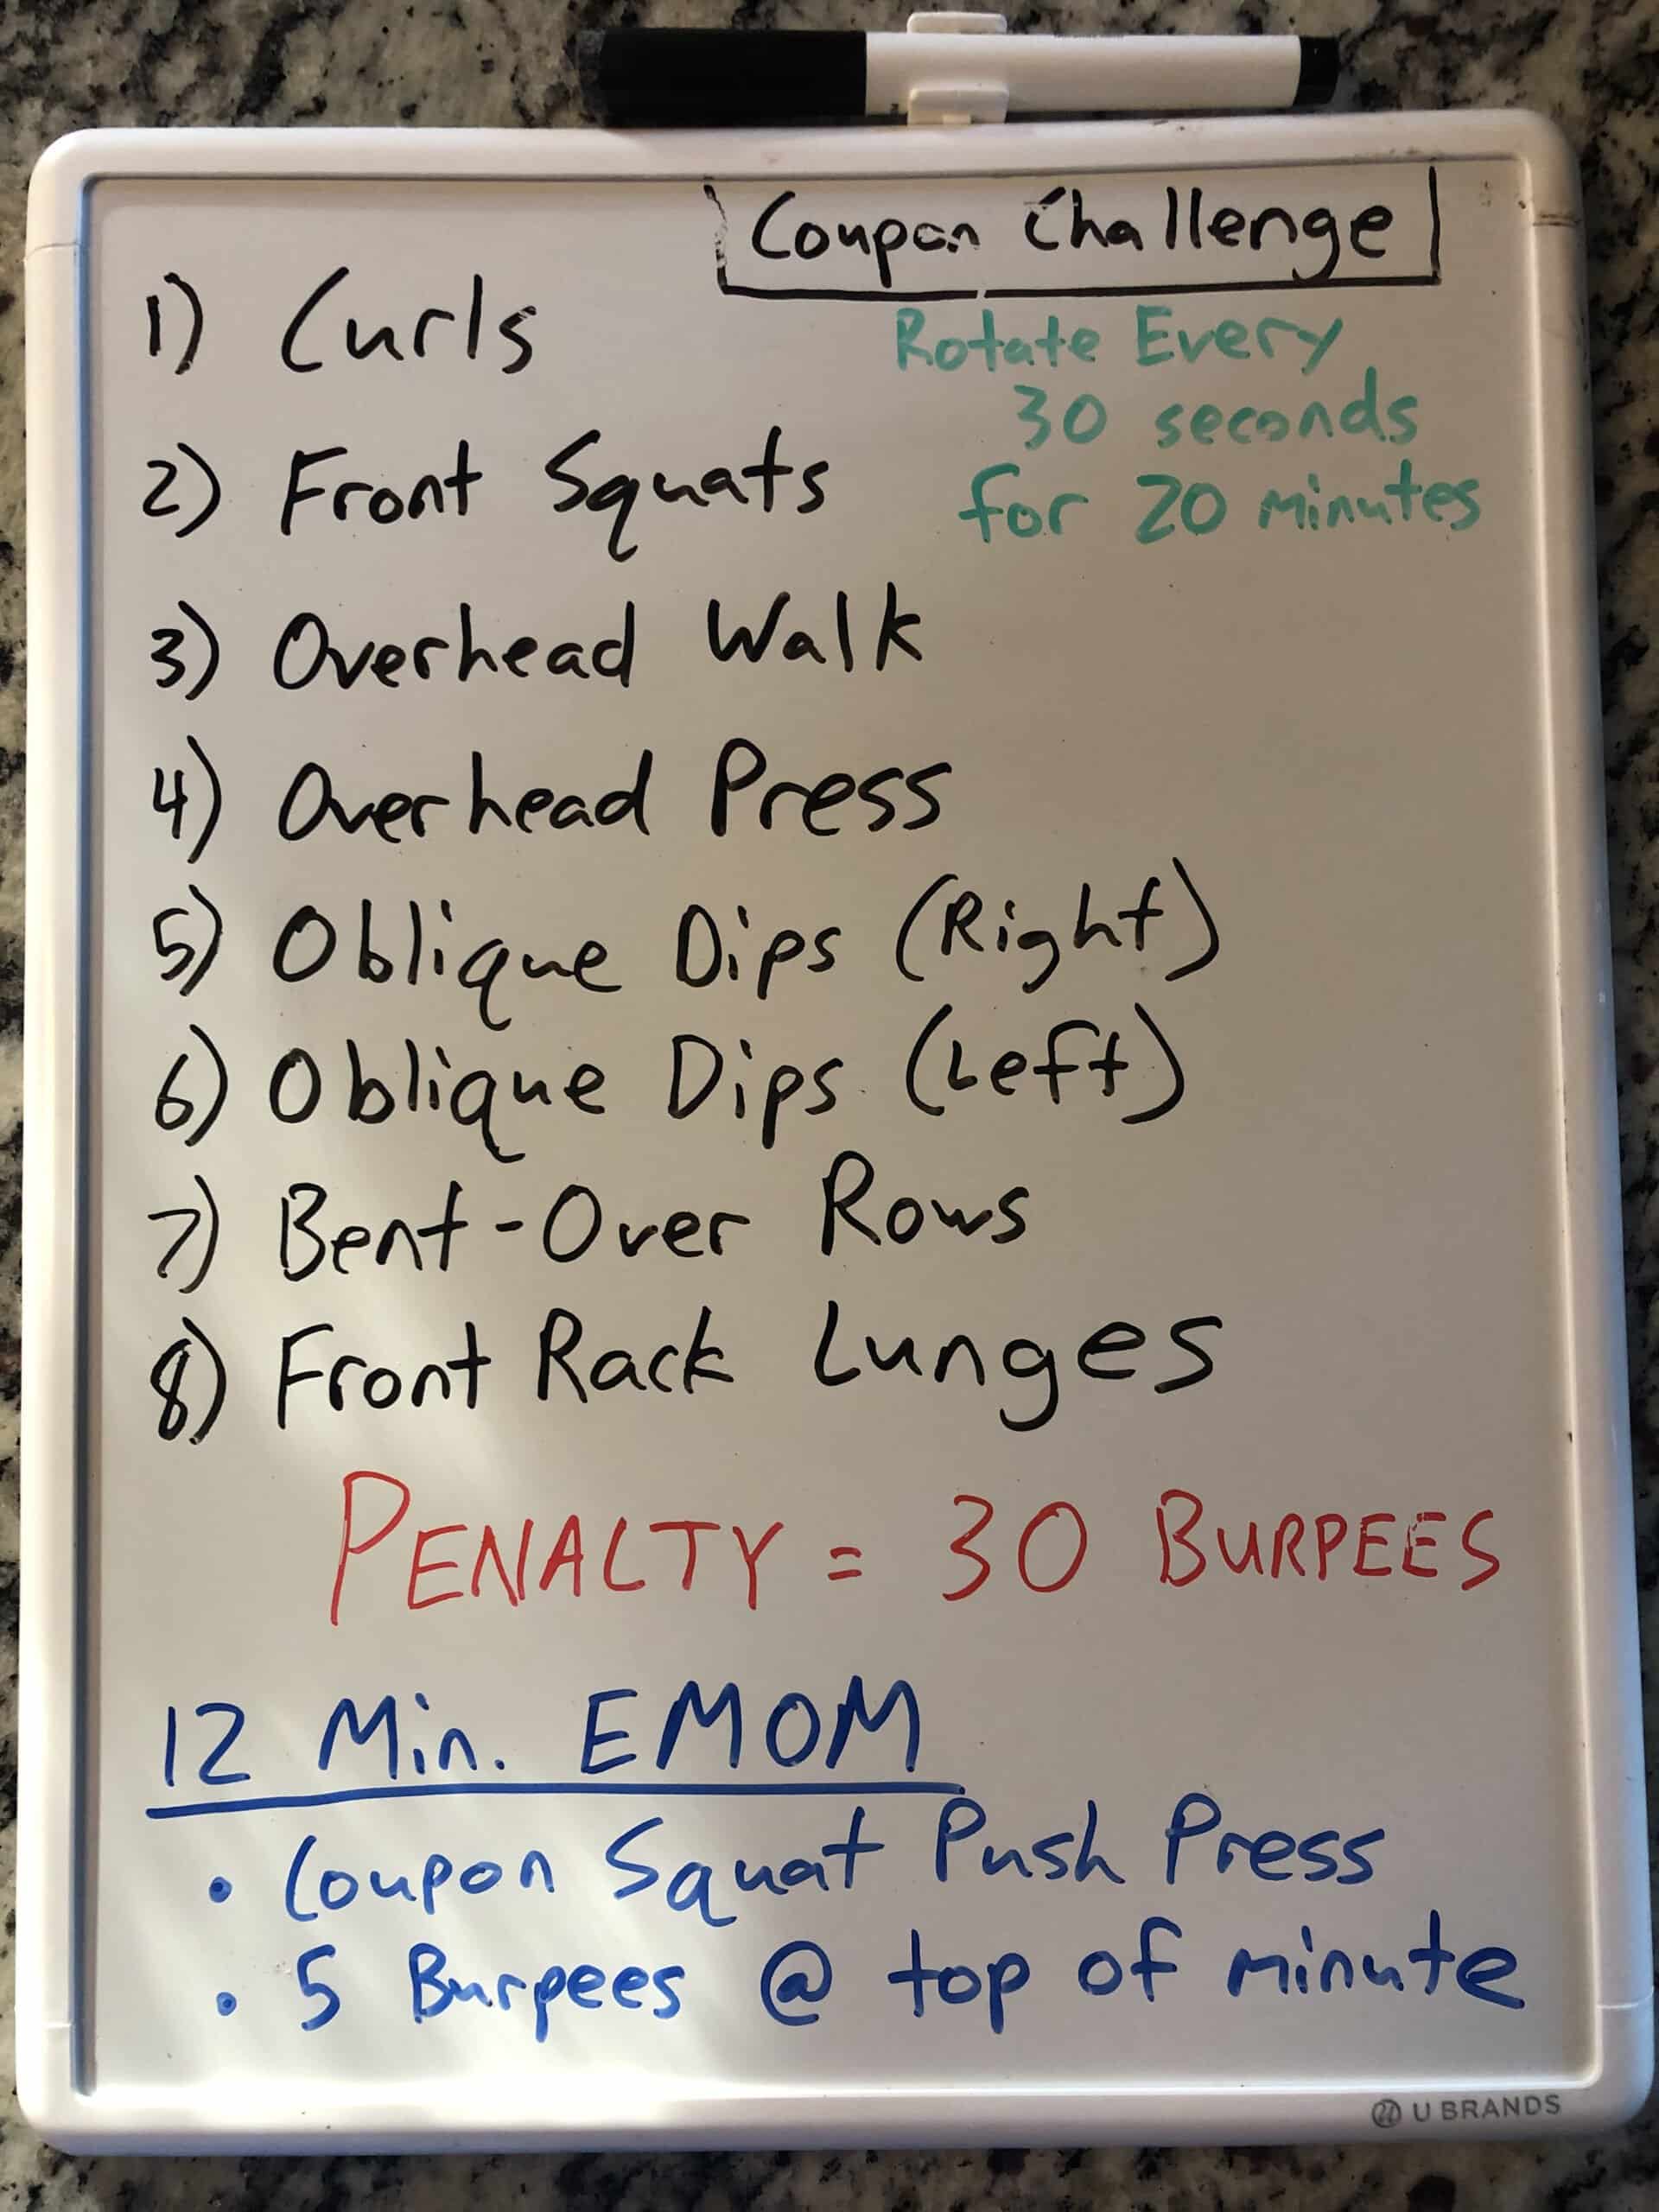 Coupon Challenge
Rotate Every
30 seconds
for 20 minutes
1) Curls
2) Front Squats
3) Overhead Walk
4) Overhead Press
5) Oblique Dips (Right)
6) Oblique Dips (Left)
7) Bent-Over Rows
8) Front Rack Lunges
PENALTY = 30 BURPEES
12 Min. EMOM
• Coupon Squat Push Press
• 5 Burpees @ top of minute
U BRANDS